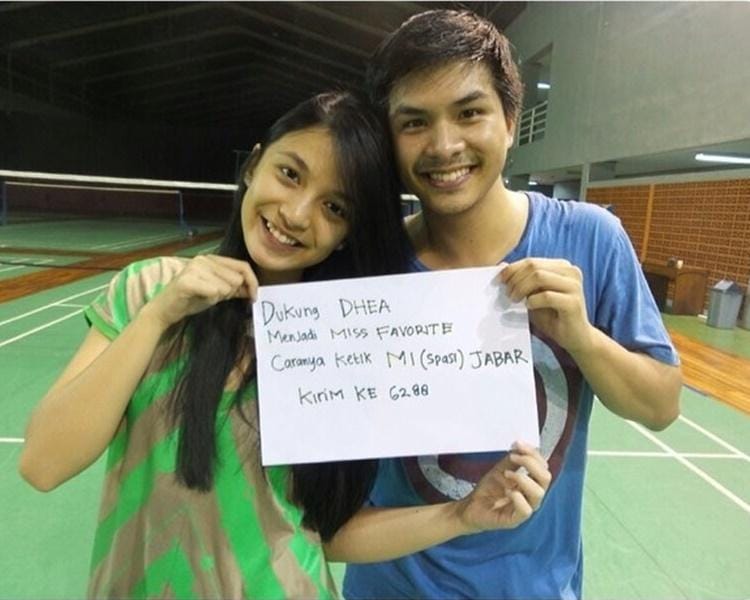 Dukung DHEA
Menjadi MISS FAVORITE
Caranya Ketik MI (spasi) JABAR
Kirim KE 6288